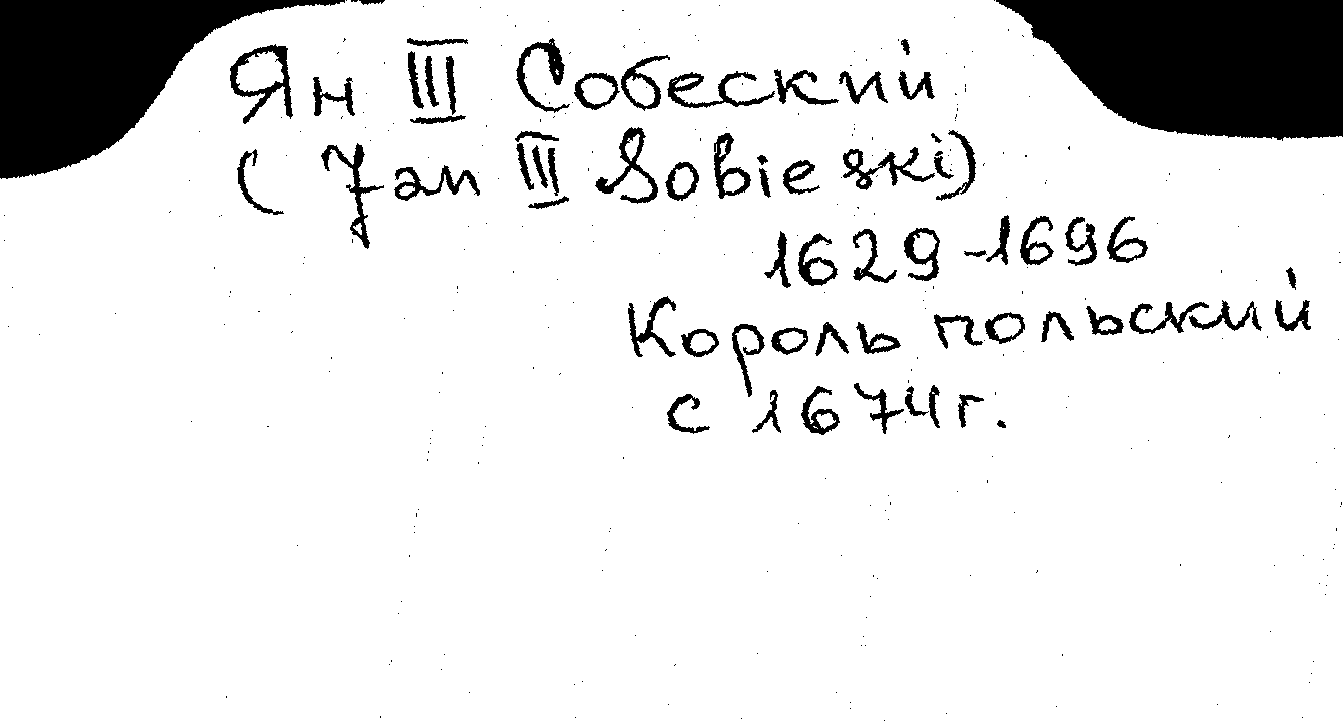 Ян III Собеский
(Jan III Sobieski)
1629-1696
Король польский
с 1674г.